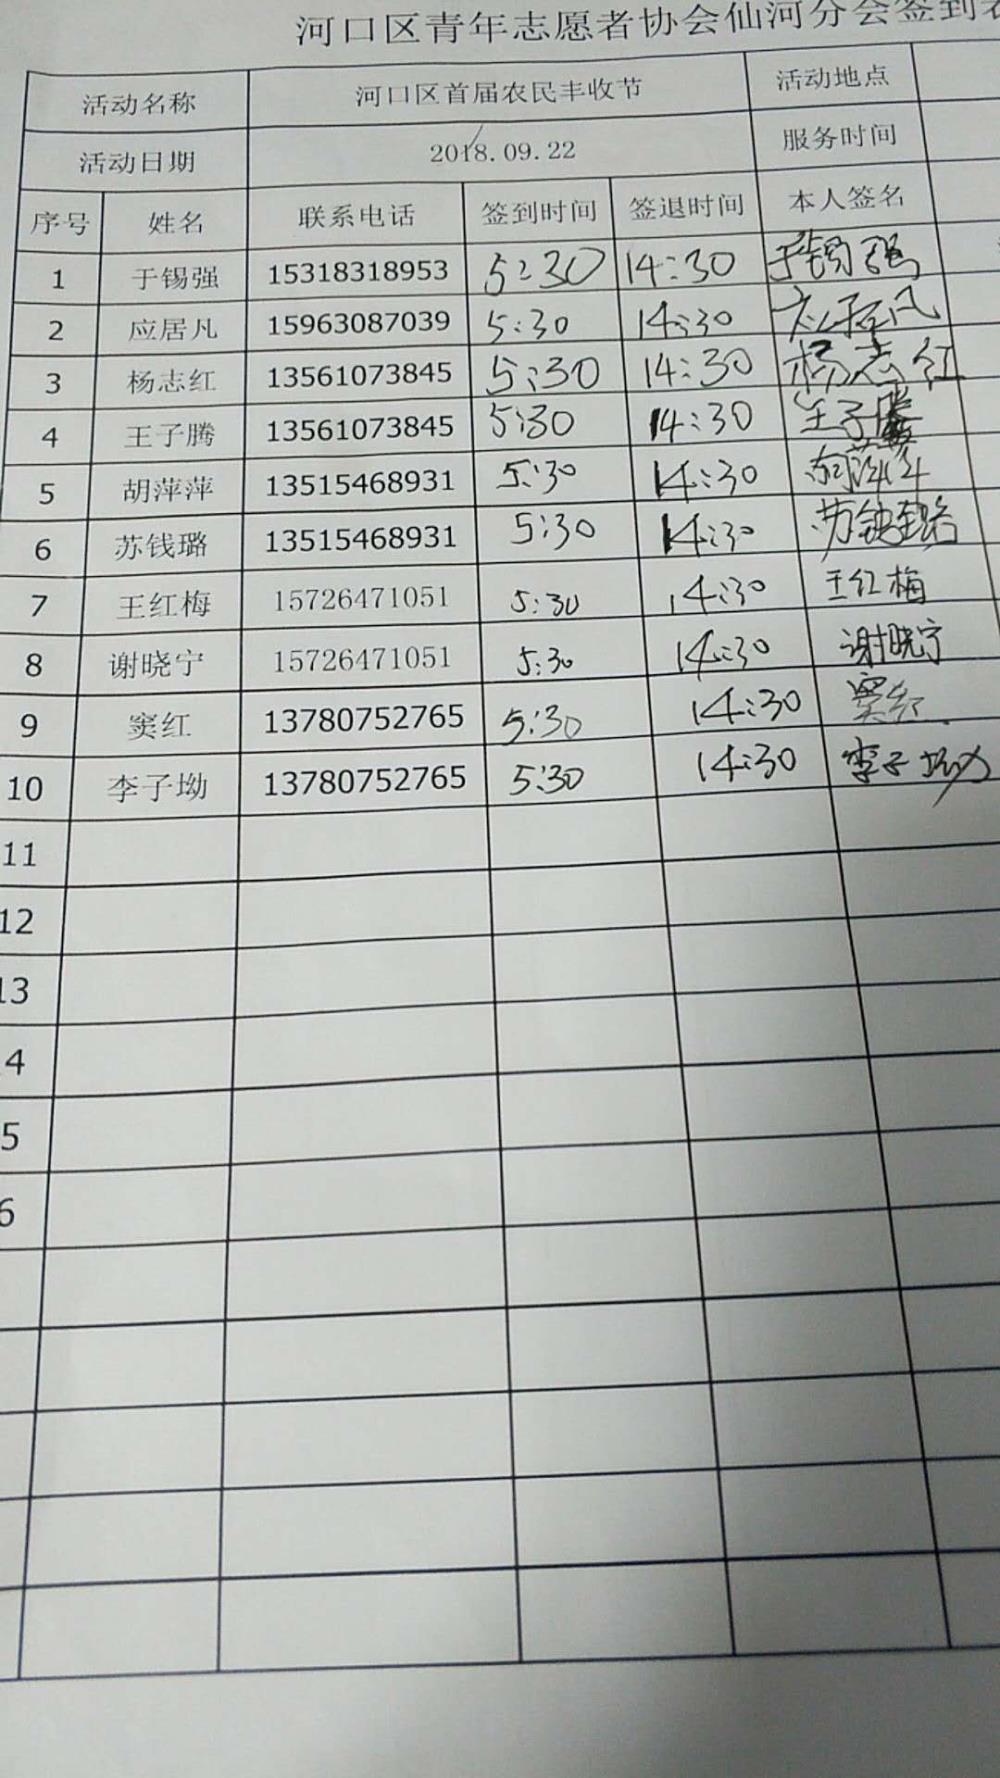 河口区青年志愿者协会仙河分会签到表
活动名称 河口区首届农民丰收节 活动地点
活动日期 2018.09.22 服务时间
序号 姓名 联系电话 签到时间 签退时间 本人签名
1 于锡强 15318318953 5:30 14:30 于锡强
2 应居凡 15963087039 5:30 14:30 应居凡
3 杨志红 13561073845 5:30 14:30 杨志红
4 王子腾 13561073845 5:30 14:30 王子腾
5 胡萍萍 13515468931 5:30 14:30 胡萍萍
6 苏钱璐 13515468931 5:30 14:30 苏钱璐
7 王红梅 15726471051 5:30 14:30 王红梅
8 谢晓宁 15726471051 5:30 14:30 谢晓宁
9 窦红 13780752765 5:30 14:30 窦红
10 李子坳 13780752765 5:30 14:30 李子坳
11
12
13
4
5
6